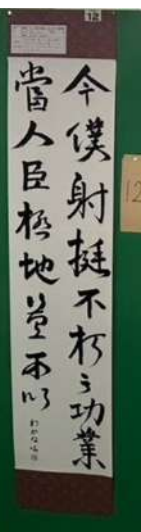 12
今僕射挺不朽之功業
當人臣極地豈不以
12